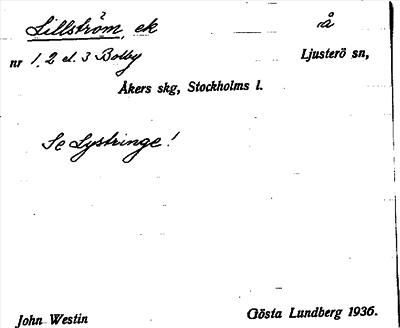 Lillström, ek å
nr 1, 2 el. 3 Bolby Ljusterö sn,
Åkers skg, Stockholms l.
Se Lystringe!
John Westin Gösta Lundberg 1936.